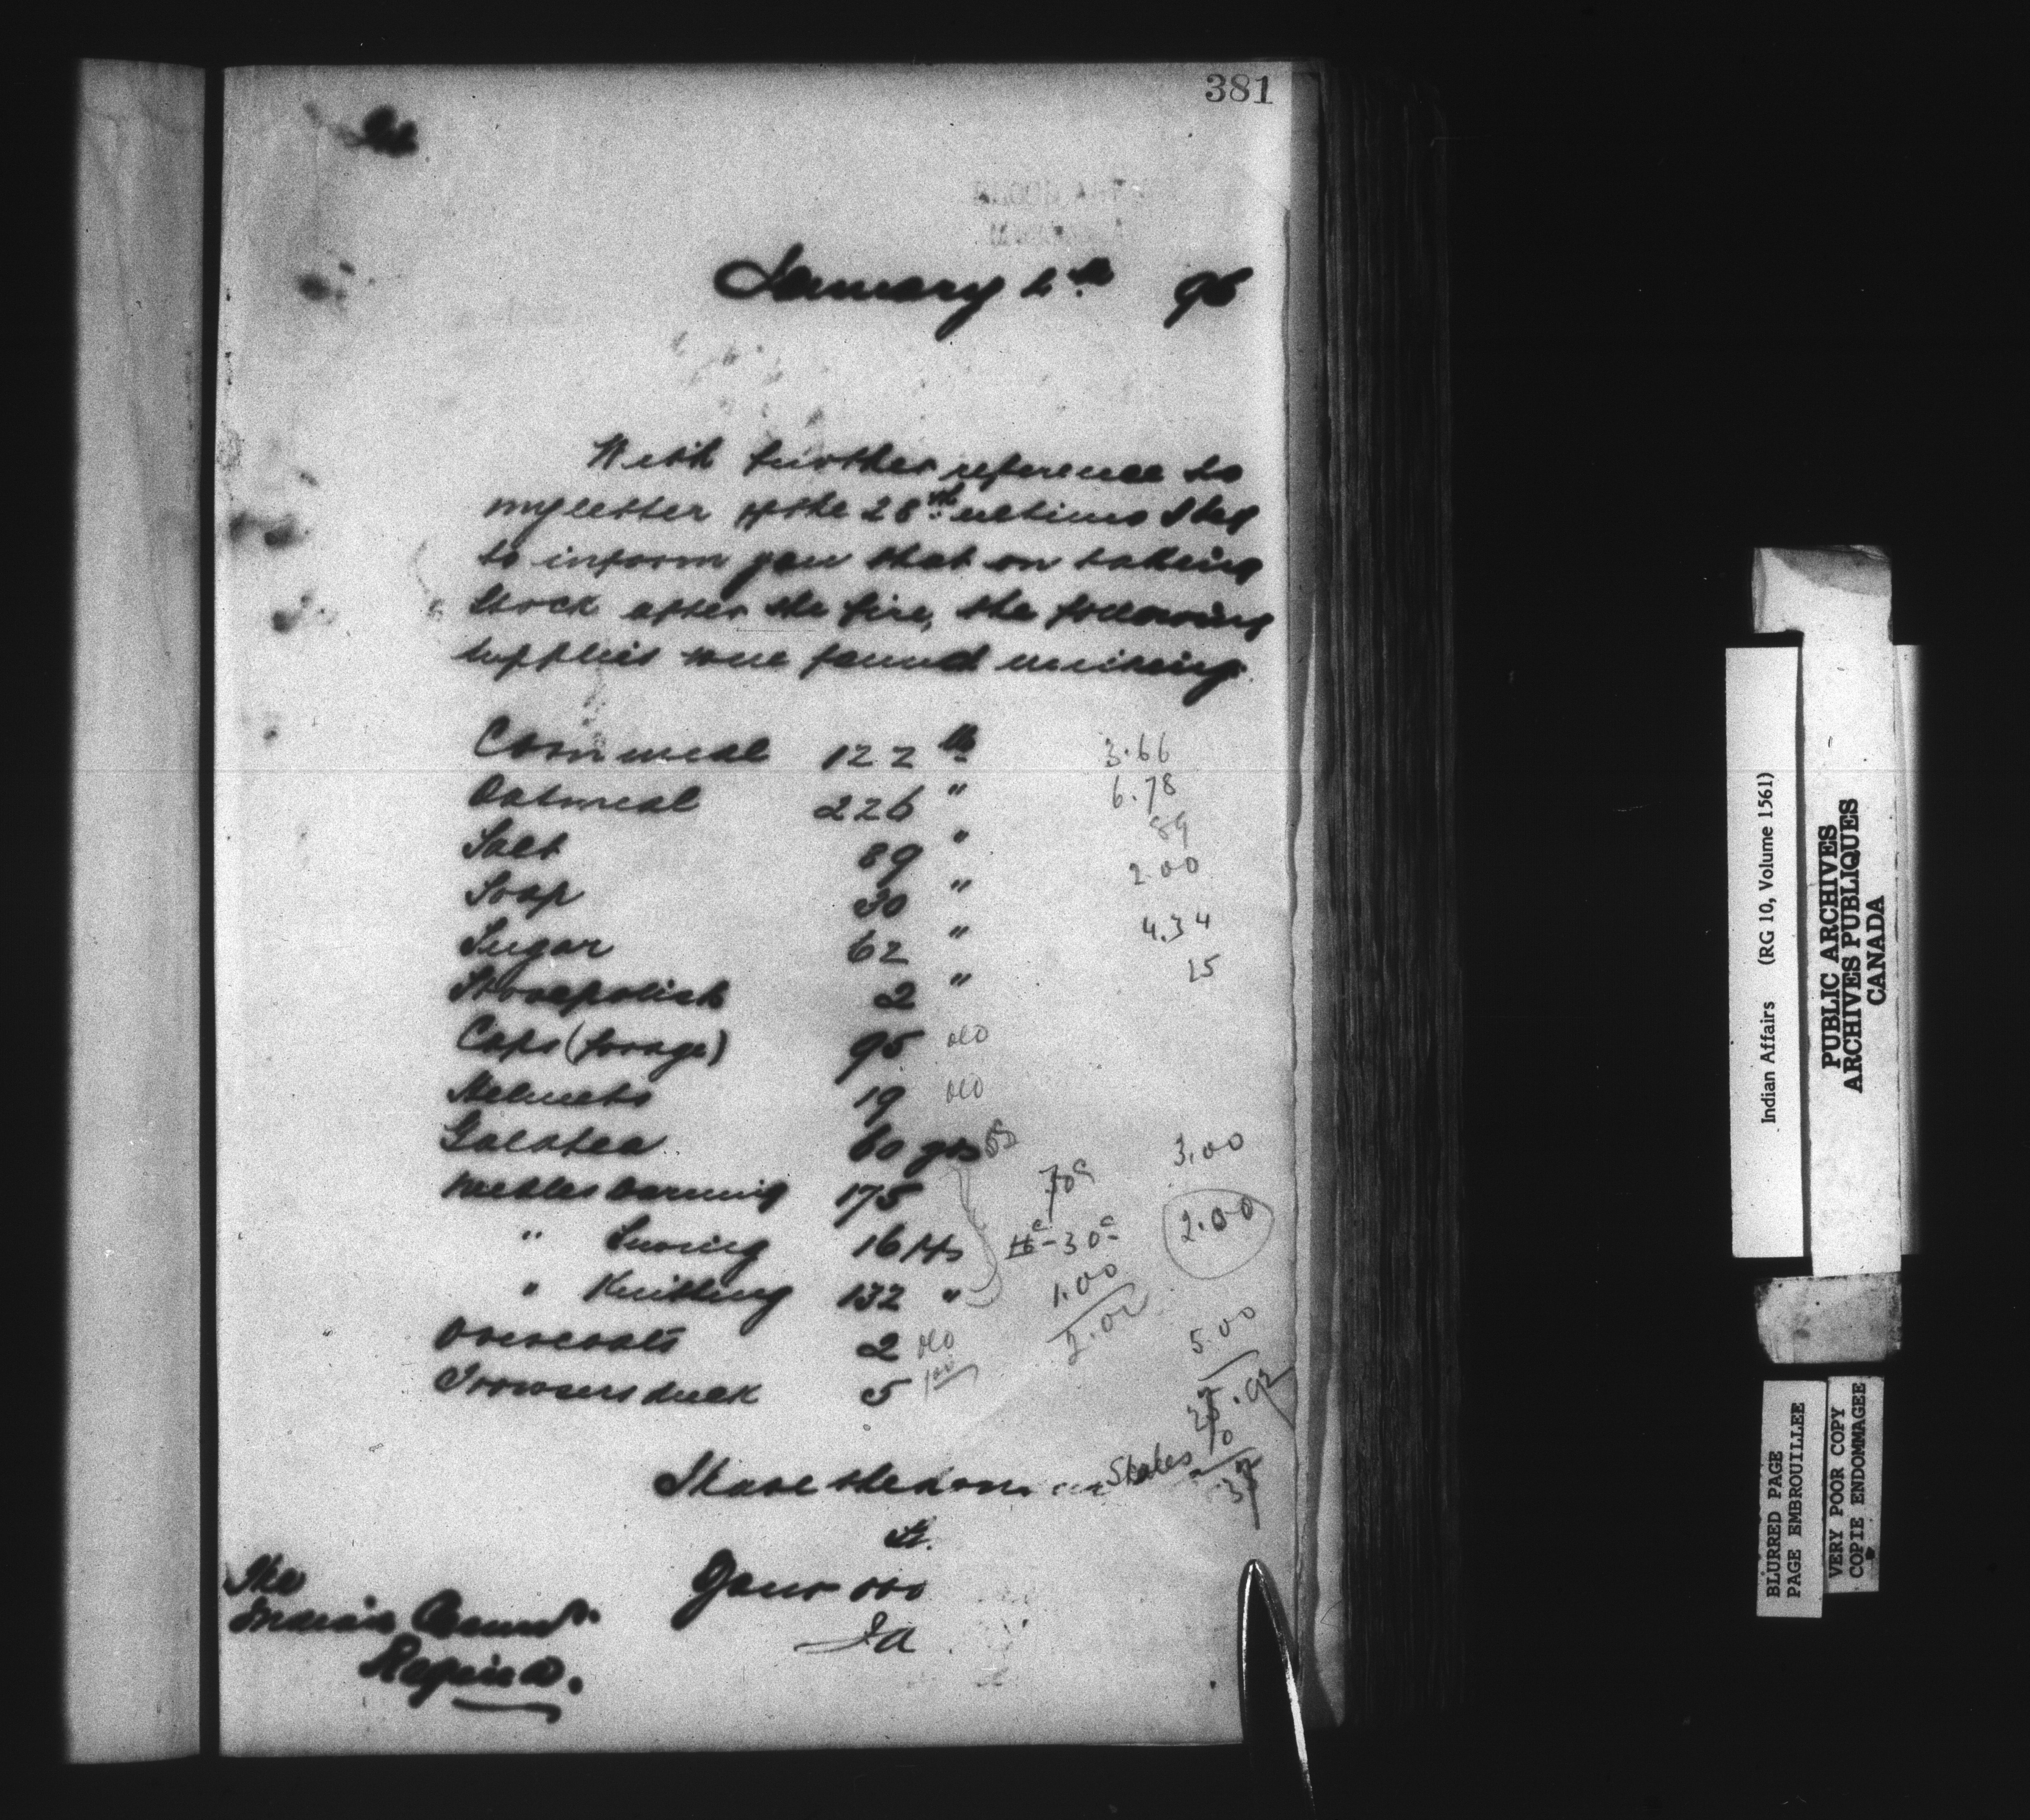 381
January 2nd 96
With further reference to
my letter of the 28th ultimo I beg
to inform you that on taking
stock after the fire, the following
supplies were found missing.
Cornmeal 122 lb 3.66
Oatmeal 226 " 6.78
Salt 89 " 89
Soap 30 " 2.00
Sugar 62 " 4.34
Stovepolish 2 " 25
Caps (forage) 95 old
Helmets 19 old
Galatea 60 yds 5c 3.00
Needles darning 175 70c
" Sewing 16 30c 2.00
" Knitting 132 " 1.00
Overcoats 2 old 2.00
Trowsers duck 5 1.00 5.00
.92
I have the honor Skates
Sr.
Your
The
Indian Commr.
Regina.
Indian Affairs (RG 10, Volume 1561)
PUBLIC ARCHIVES
ARCHIVES PUBLIQUES
CANADA
BLURRED PAGE
PAGE EMBROUILLEE
VERY POOR COPY
COPIE ENDOMMAGEE